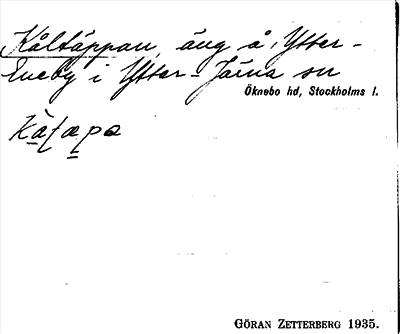 Kåltäppan, äng å Ytter-
Eneby i Ytter-Järna sn
Öknebo hd, Stockholms l.
GÖRAN ZETTERBERG 1935.